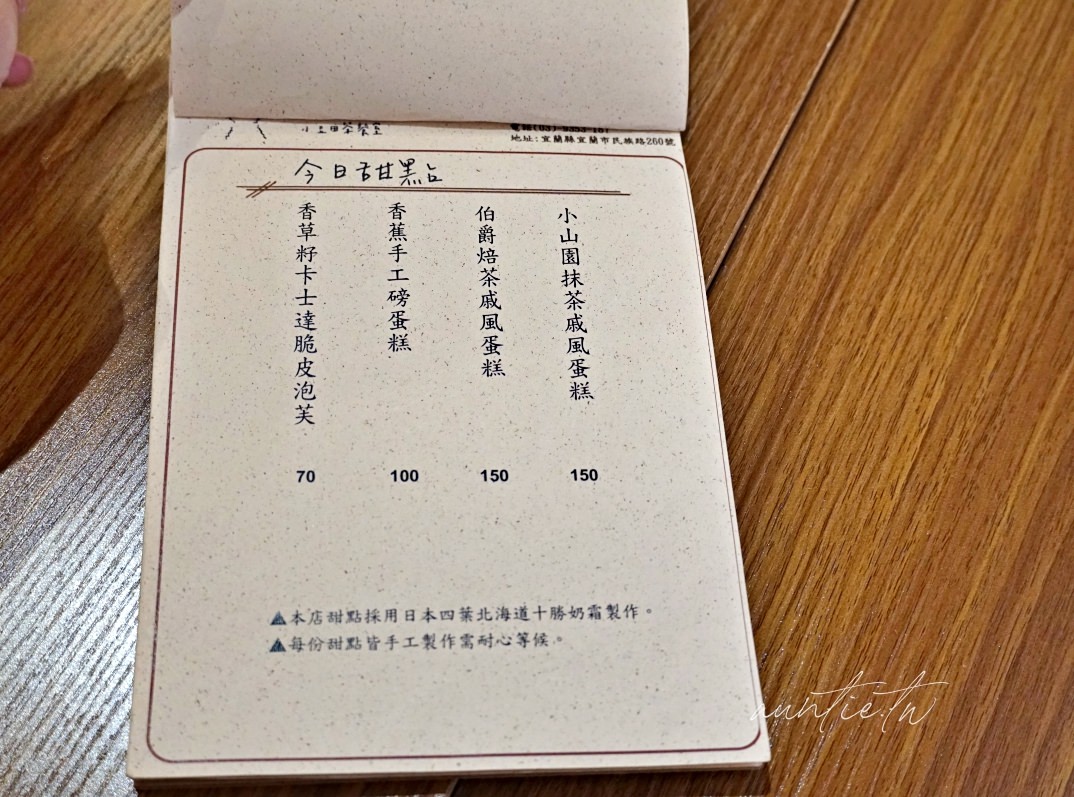 地址:宜蘭縣宜蘭市民族路260號
今日甜點
小山園抹茶戚風蛋糕
150
伯爵焙茶戚風蛋糕
150
香蕉手工磅蛋糕
100
香草籽卡士達脆皮泡芙
70
本店甜點採用日本四葉北海道十勝奶霜製作。
每份甜點皆手工製作需耐心等候。
auntie.tw